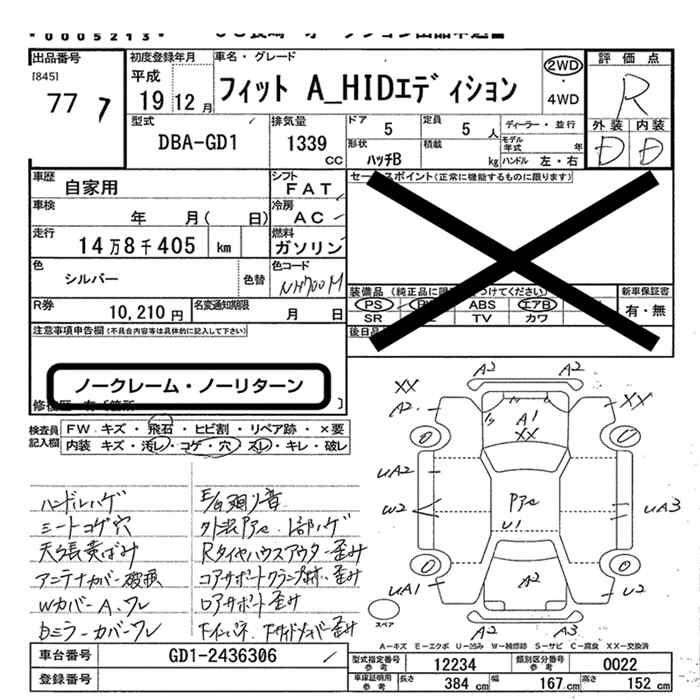 *0005213*
出品番号
[845]
77
7
初度登録年月
平成
19年12月
車名・グレード
フィット A_HIDエディション
2WD
・
4WD
評価点
R
外装 内装
D D
型式
DBA-GD1
排気量
1339
CC
ドア
5
定員
5人
形状
ハッチB
積載
kg
ディーラー・並行
モデル年式
年
ハンドル 左・右
車歴
自家用
シフト
FAT
車検
年 月( 日)
冷房
AC
走行
14万8千405 km
燃料
ガソリン
色
シルバー
色替
色コード
NH700M
R券
10,210円
名変通知期限
月 日
セールスポイント(正常に機能するものに限ります)
PS
ABS
エアB
SR
TV
カワ
新車保証書
有・無
注意事項申告欄(不具合内容等は具体的に記入して下さい)
ノークレーム・ノーリターン
検査員
記入欄
FW キズ・飛石・ヒビ割・リペア跡・×要
内装 キズ・汚レ・コゲ・穴・スレ・キレ・破レ
ハンドルハゲ
シートコゲ穴
天張黄ばみ
アンテナカバー破損
Wカバー A、ワレ
Dミラーカバーワレ
E/G廻り音
外装PアC、1部ハゲ
Rタイヤハウスアウター歪み
コアサポート歪み
ロアサポート歪み
XX
A2
A2
A2
XX
A1
XX
UA2
W2
UA3
U1
UA1
A2
U2
A2
A3
スペア
A−キズ E−エクボ U−凹み W−補修跡 S−サビ C−腐食 XX−交換済
車台番号
GD1-2436306
登録番号
型式指定番号
参考
12234
類別区分番号
参考
0022
車庫証明用
参考
長さ
384 cm
幅
167 cm
高さ
152 cm